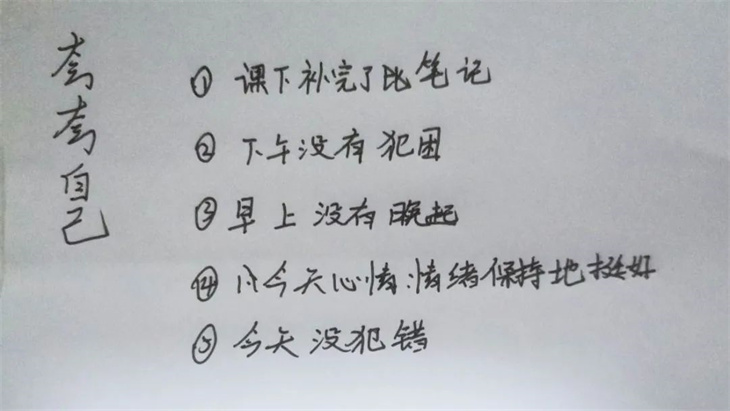 夸夸自己
① 课下补完了比笔记
② 下午没有犯困
③ 早上没有晚起
④ 今天心情,情绪保持地挺好
⑤ 今天没犯错